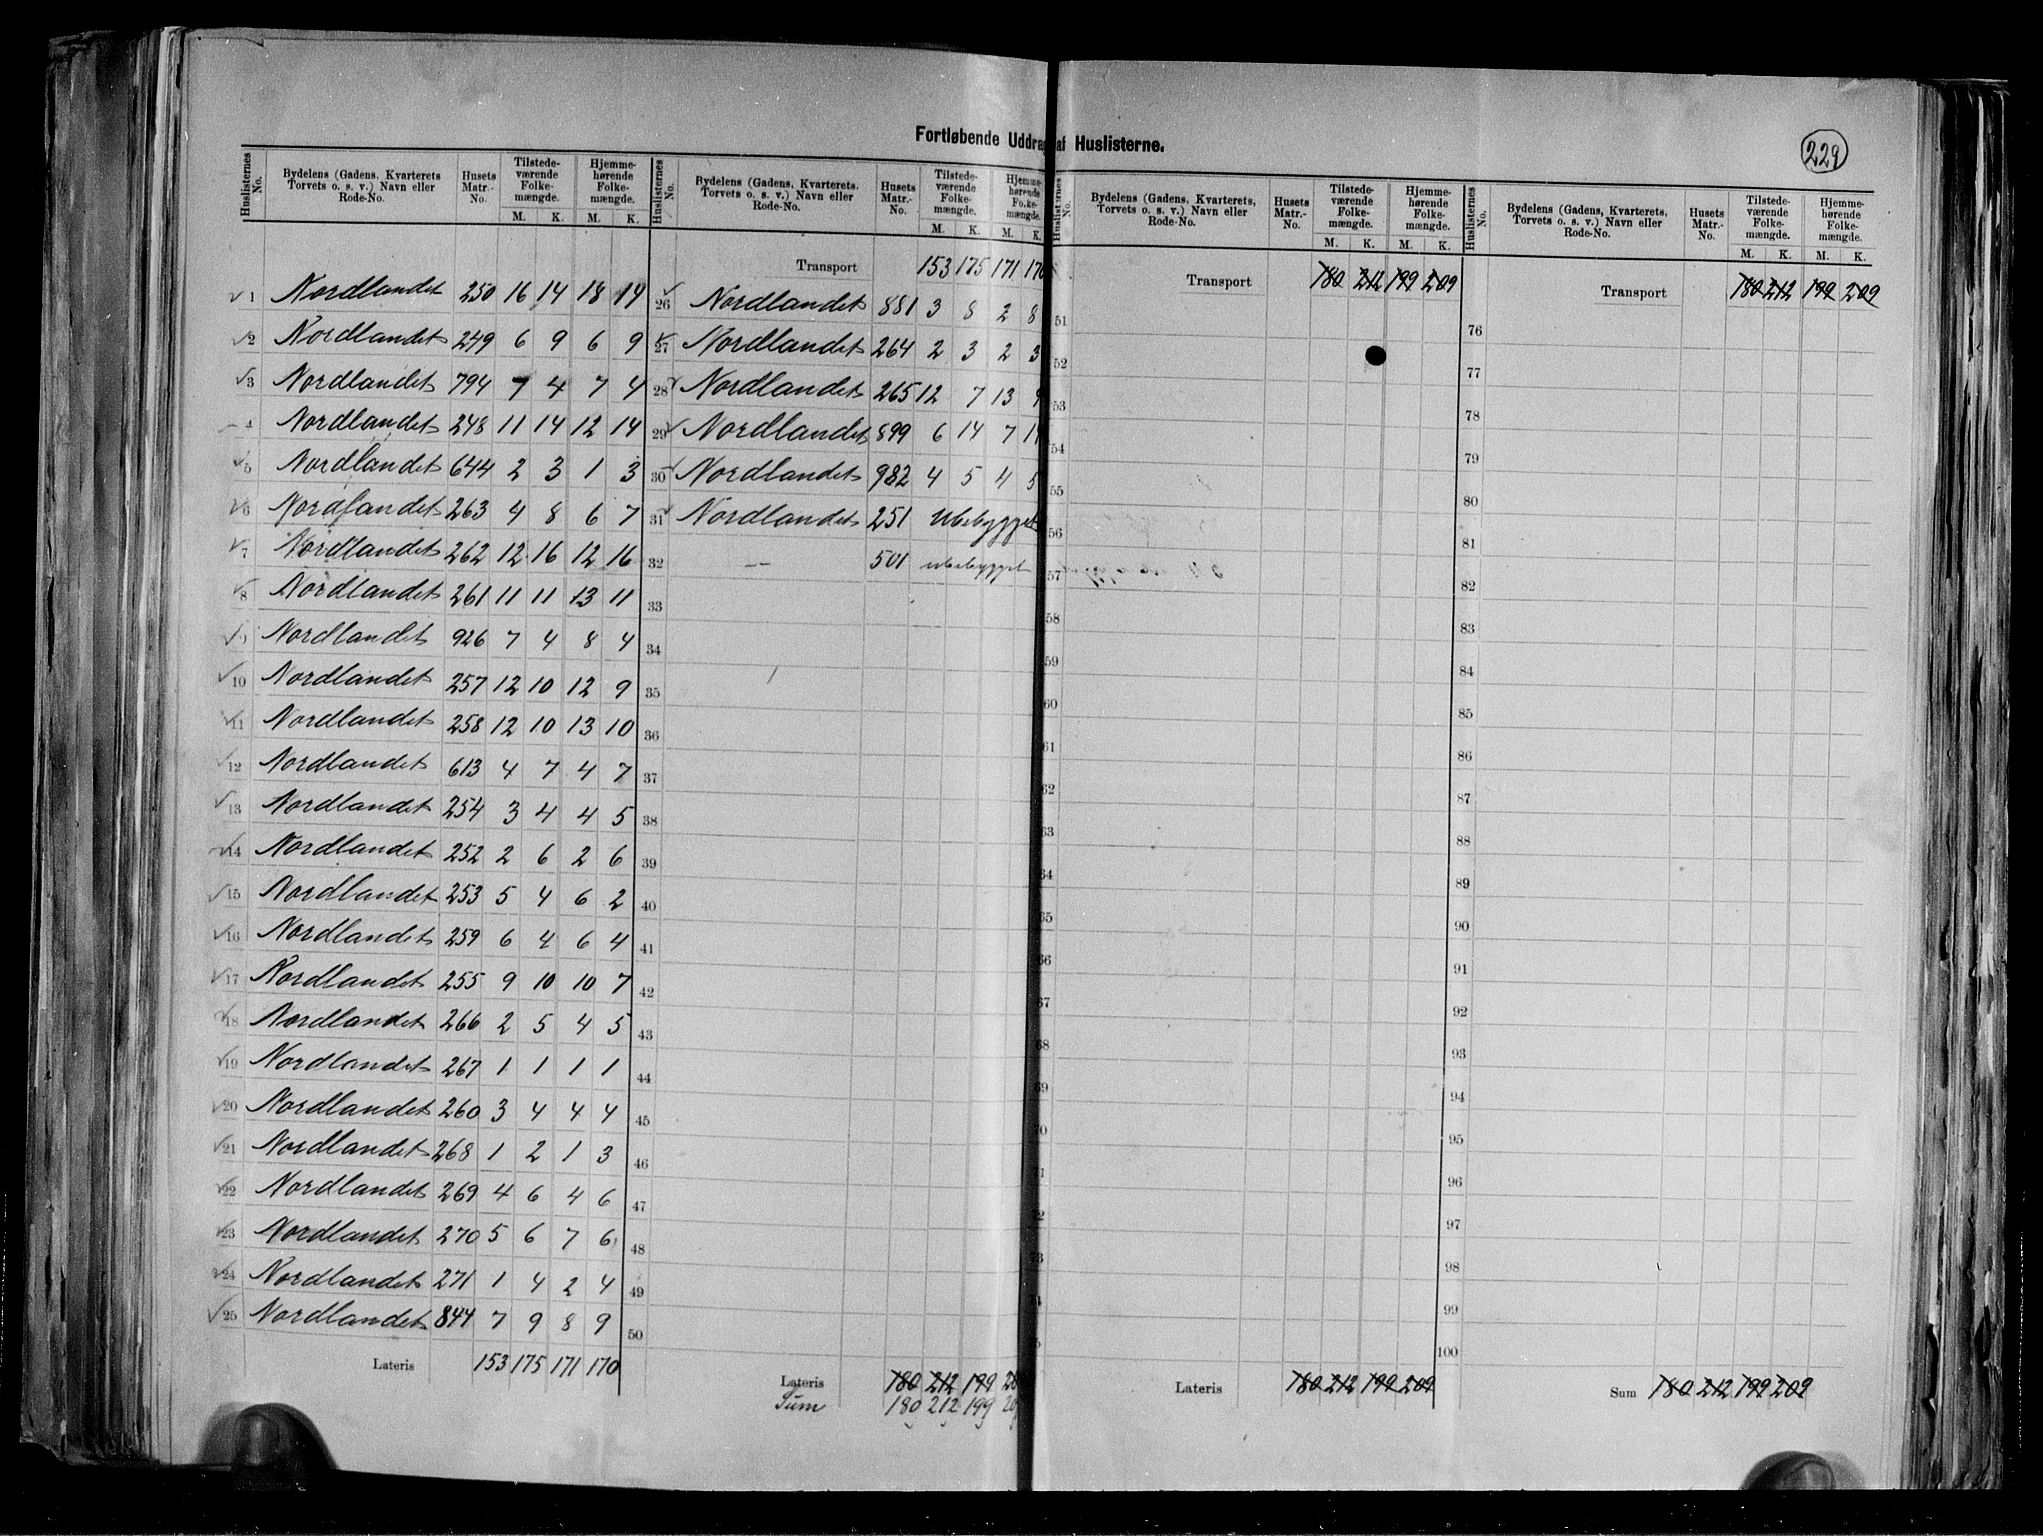 Fortløbende Uddrag af Huslisterne.
229
Huslisternes No. Bydelens (Gadens, Kvarterets, Torvets o. s. v.) Navn eller Rode-No. Husets Matr.-No. Tilstedeværende Folkemængde. M. K. Hjemmehørende Folkemængde. M. K.
1 Nordlandet 250 16 14 18 14
2 Nordlandet 249 6 9 6 9
3 Nordlandet 794 7 4 7 4
4 Nordlandet 248 11 14 12 14
5 Nordlandet 644 2 3 1 3
6 Nordlandet 263 4 8 6 7
7 Nordlandet 262 12 16 12 16
8 Nordlandet 261 11 11 13 11
9 Nordlandet 926 7 4 8 4
10 Nordlandet 257 12 10 12 9
11 Nordlandet 258 12 10 13 10
12 Nordlandet 613 4 7 4 7
13 Nordlandet 254 3 4 4 5
14 Nordlandet 252 2 6 2 6
15 Nordlandet 253 5 4 6 2
16 Nordlandet 259 6 4 6 4
17 Nordlandet 255 9 10 10 7
18 Nordlandet 266 2 5 4 5
19 Nordlandet 267 1 1 1 1
20 Nordlandet 260 3 4 4 4
21 Nordlandet 268 1 2 1 3
22 Nordlandet 269 4 6 4 6
23 Nordlandet 270 5 6 7 6
24 Nordlandet 271 1 4 2 4
25 Nordlandet 844 7 9 8 9
Lateris 153 175 171 170
Huslisternes No. Bydelens (Gadens, Kvarterets, Torvets o. s. v.) Navn eller Rode-No. Husets Matr.-No. Tilstedeværende Folkemængde. M. K. Hjemmehørende Folkemængde. M. K.
Transport 153 175 171 170
26 Nordlandet 881 3 8 2 8
27 Nordlandet 264 2 3 2 3
28 Nordlandet 265 12 7 13 9
29 Nordlandet 899 6 14 7 14
30 Nordlandet 982 4 5 4 5
31 Nordlandet 251 Ubebygget
32 — 501 ubebygget
33
34
35
36
37
38
39
40
41
42
43
44
45
46
47
48
49
50
Lateris 180 212 199
Sum 180 212 199
Huslisternes No. Bydelens (Gadens, Kvarterets, Torvets o. s. v.) Navn eller Rode-No. Husets Matr.-No. Tilstedeværende Folkemængde. M. K. Hjemmehørende Folkemængde. M. K.
Transport 180 212 199 209
51
52
53
54
55
56
57
58
59
60
61
62
63
64
65
66
67
68
69
Lateris 180 212 199 209
Huslisternes No. Bydelens (Gadens, Kvarterets, Torvets o. s. v.) Navn eller Rode-No. Husets Matr.-No. Tilstedeværende Folkemængde. M. K. Hjemmehørende Folkemængde. M. K.
Transport 180 212 199 209
76
77
78
79
80
81
82
83
84
85
86
87
88
89
90
91
92
93
94
95
96
97
98
99
100
Sum 180 212 199 209